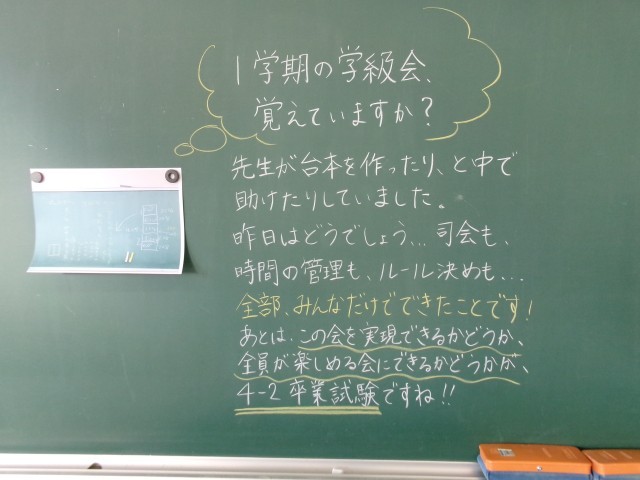 1学期の学級会、
覚えていますか？
先生が台本を作ったり、と中で
助けたりしていました。
昨日はどうでしょう…司会も、
時間の管理も、ルール決めも…
全部、みんなだけでできたことです！
あとは、この会を実現できるかどうか、
全員が楽しめる会にできるかどうかが、
4-2 卒業試験ですね!!